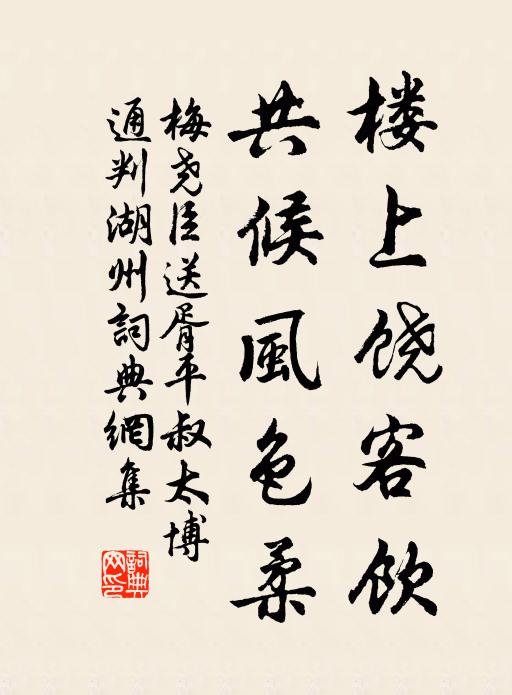 楼上饶客饮
共候風色柔
梅尧臣送胥平叔太博
通判湖州詞典網集
詞典网印